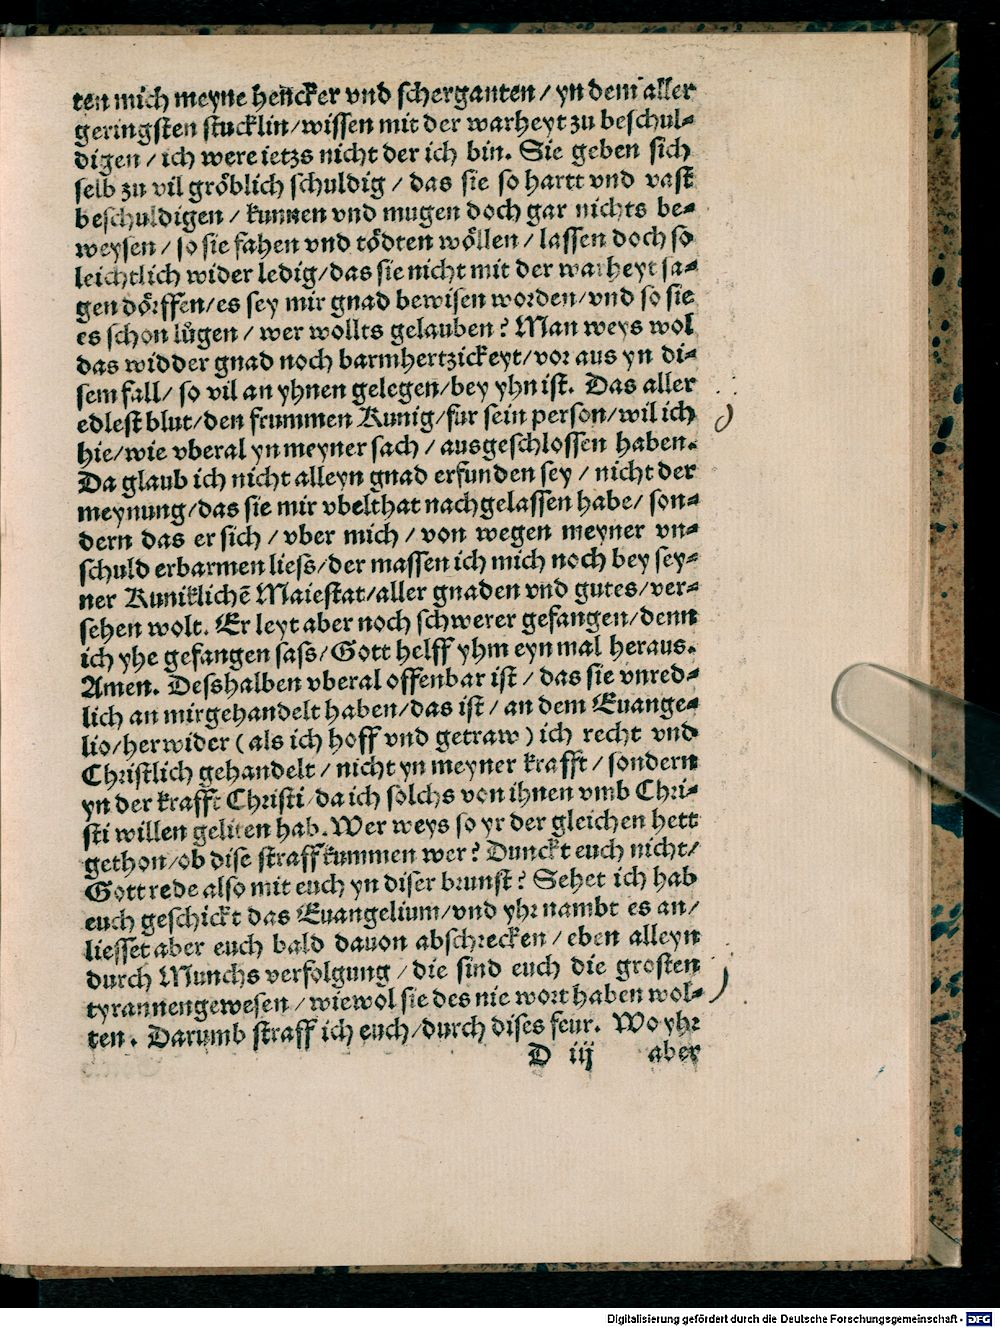 ten mich meyne hencker vnd scherganten / yn dem aller
geringsten stucklin/wissen mit der warheyt zu beschul⸗
digen / ich were ietzs nicht der ich bin. Sie geben sich
selb zu vil gröblich schuldig / das sie so hartt vnd vast
beschuldigen / kunnen vnd mugen doch gar nichts be⸗
weysen / so sie fahen vnd tödten wöllen / lassen doch so
leichtlich wider ledig/das sie nicht mit der warheyt sa⸗
gen dörffen/es sey mir gnad bewisen worden/vnd so sie
es schon lůgen / wer wollts gelauben? Man weys wol
das widder gnad noch barmhertzickeyt/vor aus yn di⸗
sem fall/ so vil an yhnen gelegen/bey yhn ist. Das aller
edlest blut/den frummen Kunig/fur sein person/wil ich
hie/wie vberal yn meyner sach / ausgeschlossen haben.
Da glaub ich nicht alleyn gnad erfunden sey / nicht der
meynung/das sie mir vbelthat nachgelassen habe/ son⸗
dern das er sich / vber mich / von wegen meyner vn⸗
schuld erbarmen liess/der massen ich mich noch bey sey⸗
ner Kuniklichē Maiestat/aller gnaden vnd gutes/ver⸗
sehen wolt. Er leyt aber noch schwerer gefangen/denn
ich yhe gefangen sass/Gott helff yhm eyn mal heraus.
Amen. Desshalben vberal offenbar ist / das sie vnred⸗
lich an mir gehandelt haben/das ist / an dem Euange⸗
lio/herwider (als ich hoff vnd getraw) ich recht vnd
Christlich gehandelt / nicht yn meyner krafft / sondern
yn der krafft Christi/da ich solchs von ihnen vmb Chri⸗
sti willen geliten hab. Wer weys so yr der gleichen hett
gethon/ob dise straff kummen wer? Dunckt euch nicht/
Gott rede also mit euch yn diser brunst? Sehet ich hab
euch geschickt das Euangelium/vnd yhr nambt es an/
liesset aber euch bald dauon abschrecken / eben alleyn
durch Munchs verfolgung / die sind euch die grosten
tyrannen gewesen / wiewol sie des nie wort haben wol⸗
ten. Darumb straff ich euch/durch dises feur. Wo yhr
D iij aber
Digitalisierung gefördert durch die Deutsche Forschungsgemeinschaft - DFG